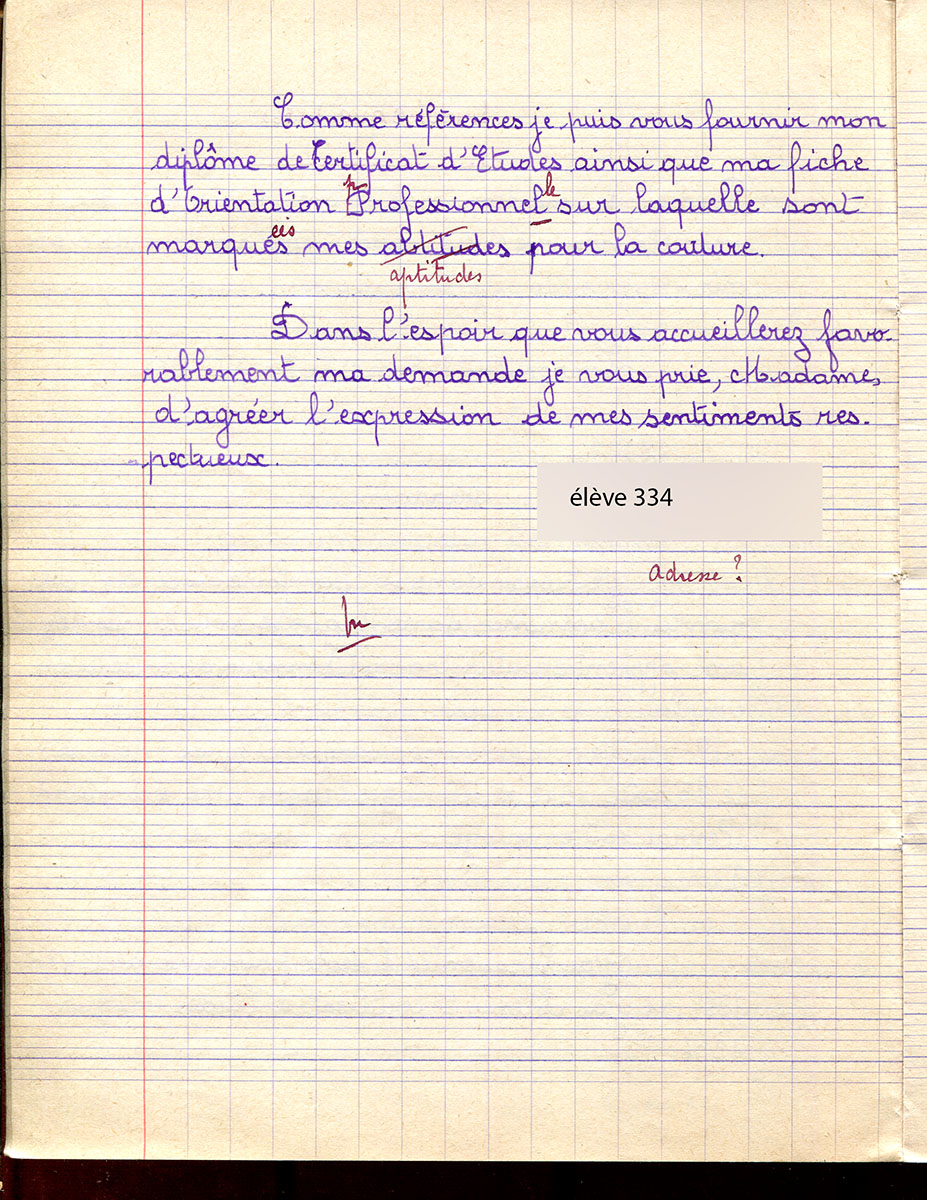 Comme références je puis vous fournir mon
diplôme de Certificat d'Etudes ainsi que ma fiche
p le
d'Orientation Professionnel sur laquelle sont
ées
marqués mes abtitudes pour la couture.
aptitudes
Dans l'espoir que vous accueillerez favo-
rablement ma demande je vous prie, Madame,
d'agréer l'expression de mes sentiments res-
pectueux.
élève 334
adresse ?